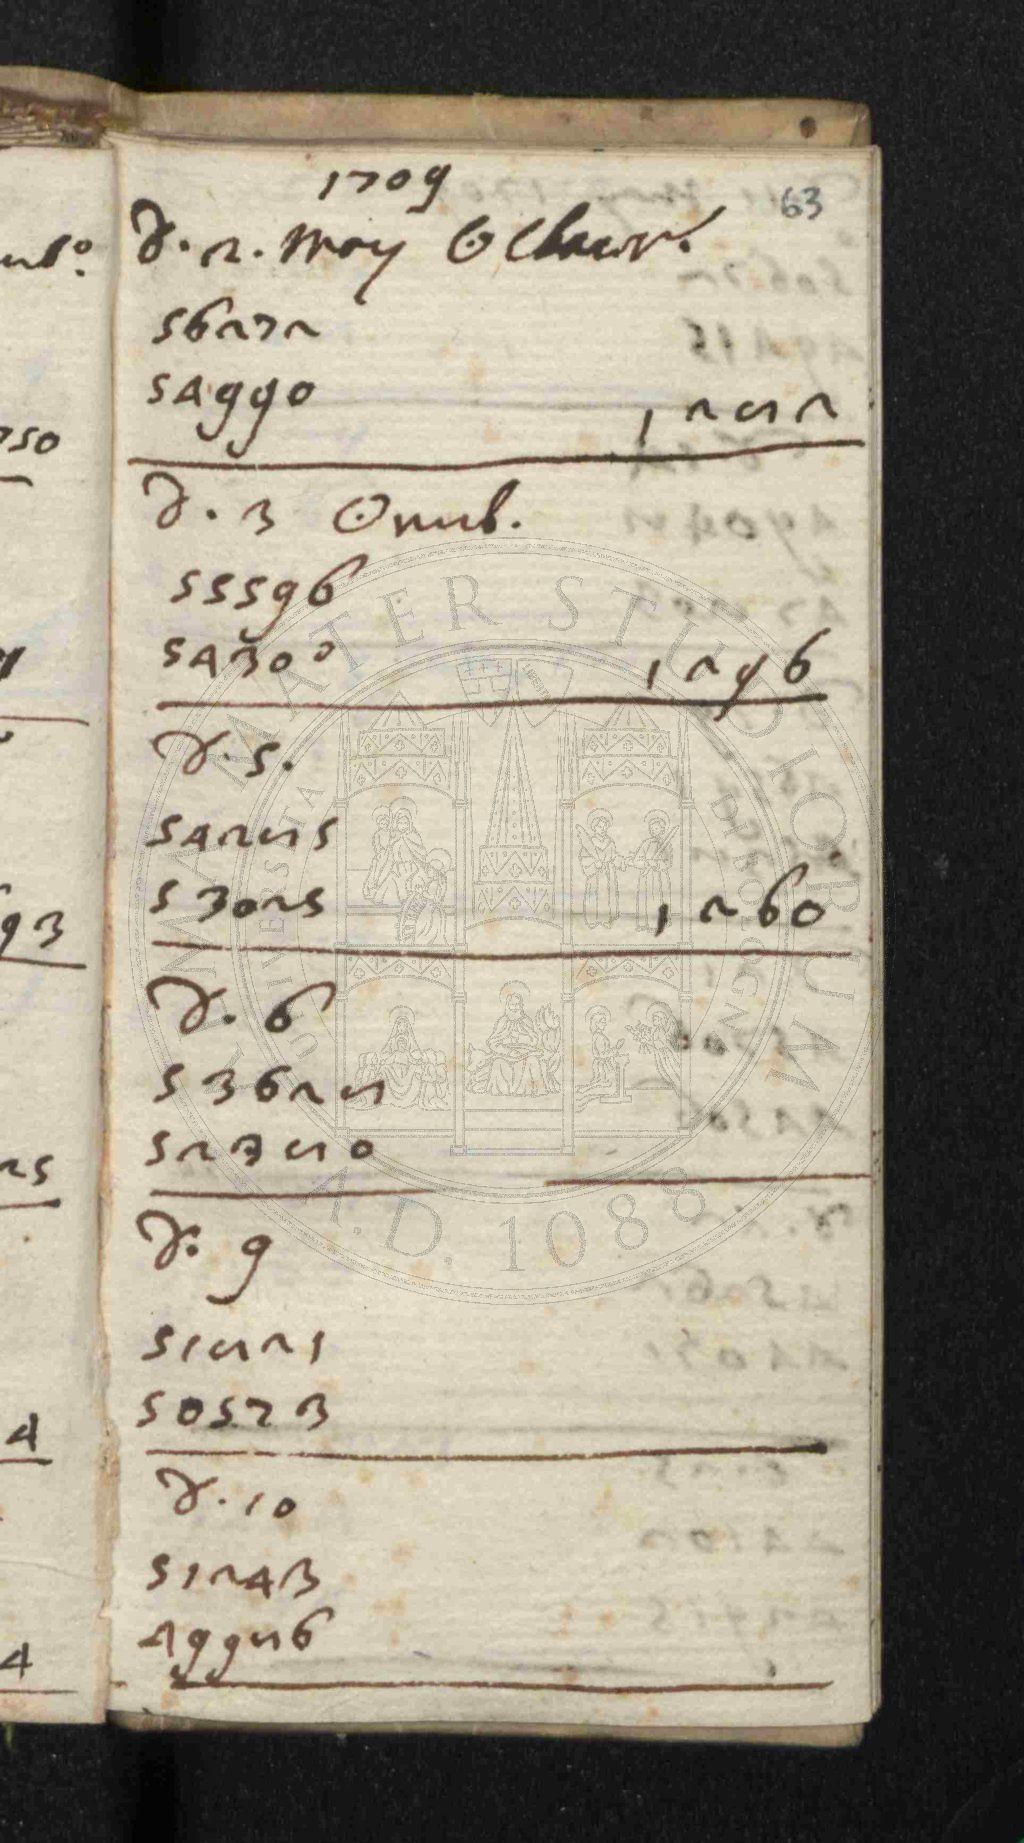 1709
63
d. 2. May ☉ Clarus.
56272
54990 1282
d. 3 ☉ nub.
55596
54300 1296
d. 5.
54285
53025 1260
d. 6
53628
52380
d. 9
51821
50573
d. 10
51243
49986
nub°.
750
93
25
4
4
ALMA MATER STUDIORUM
UNIVERSITÀ DI BOLOGNA
A.D. 1088